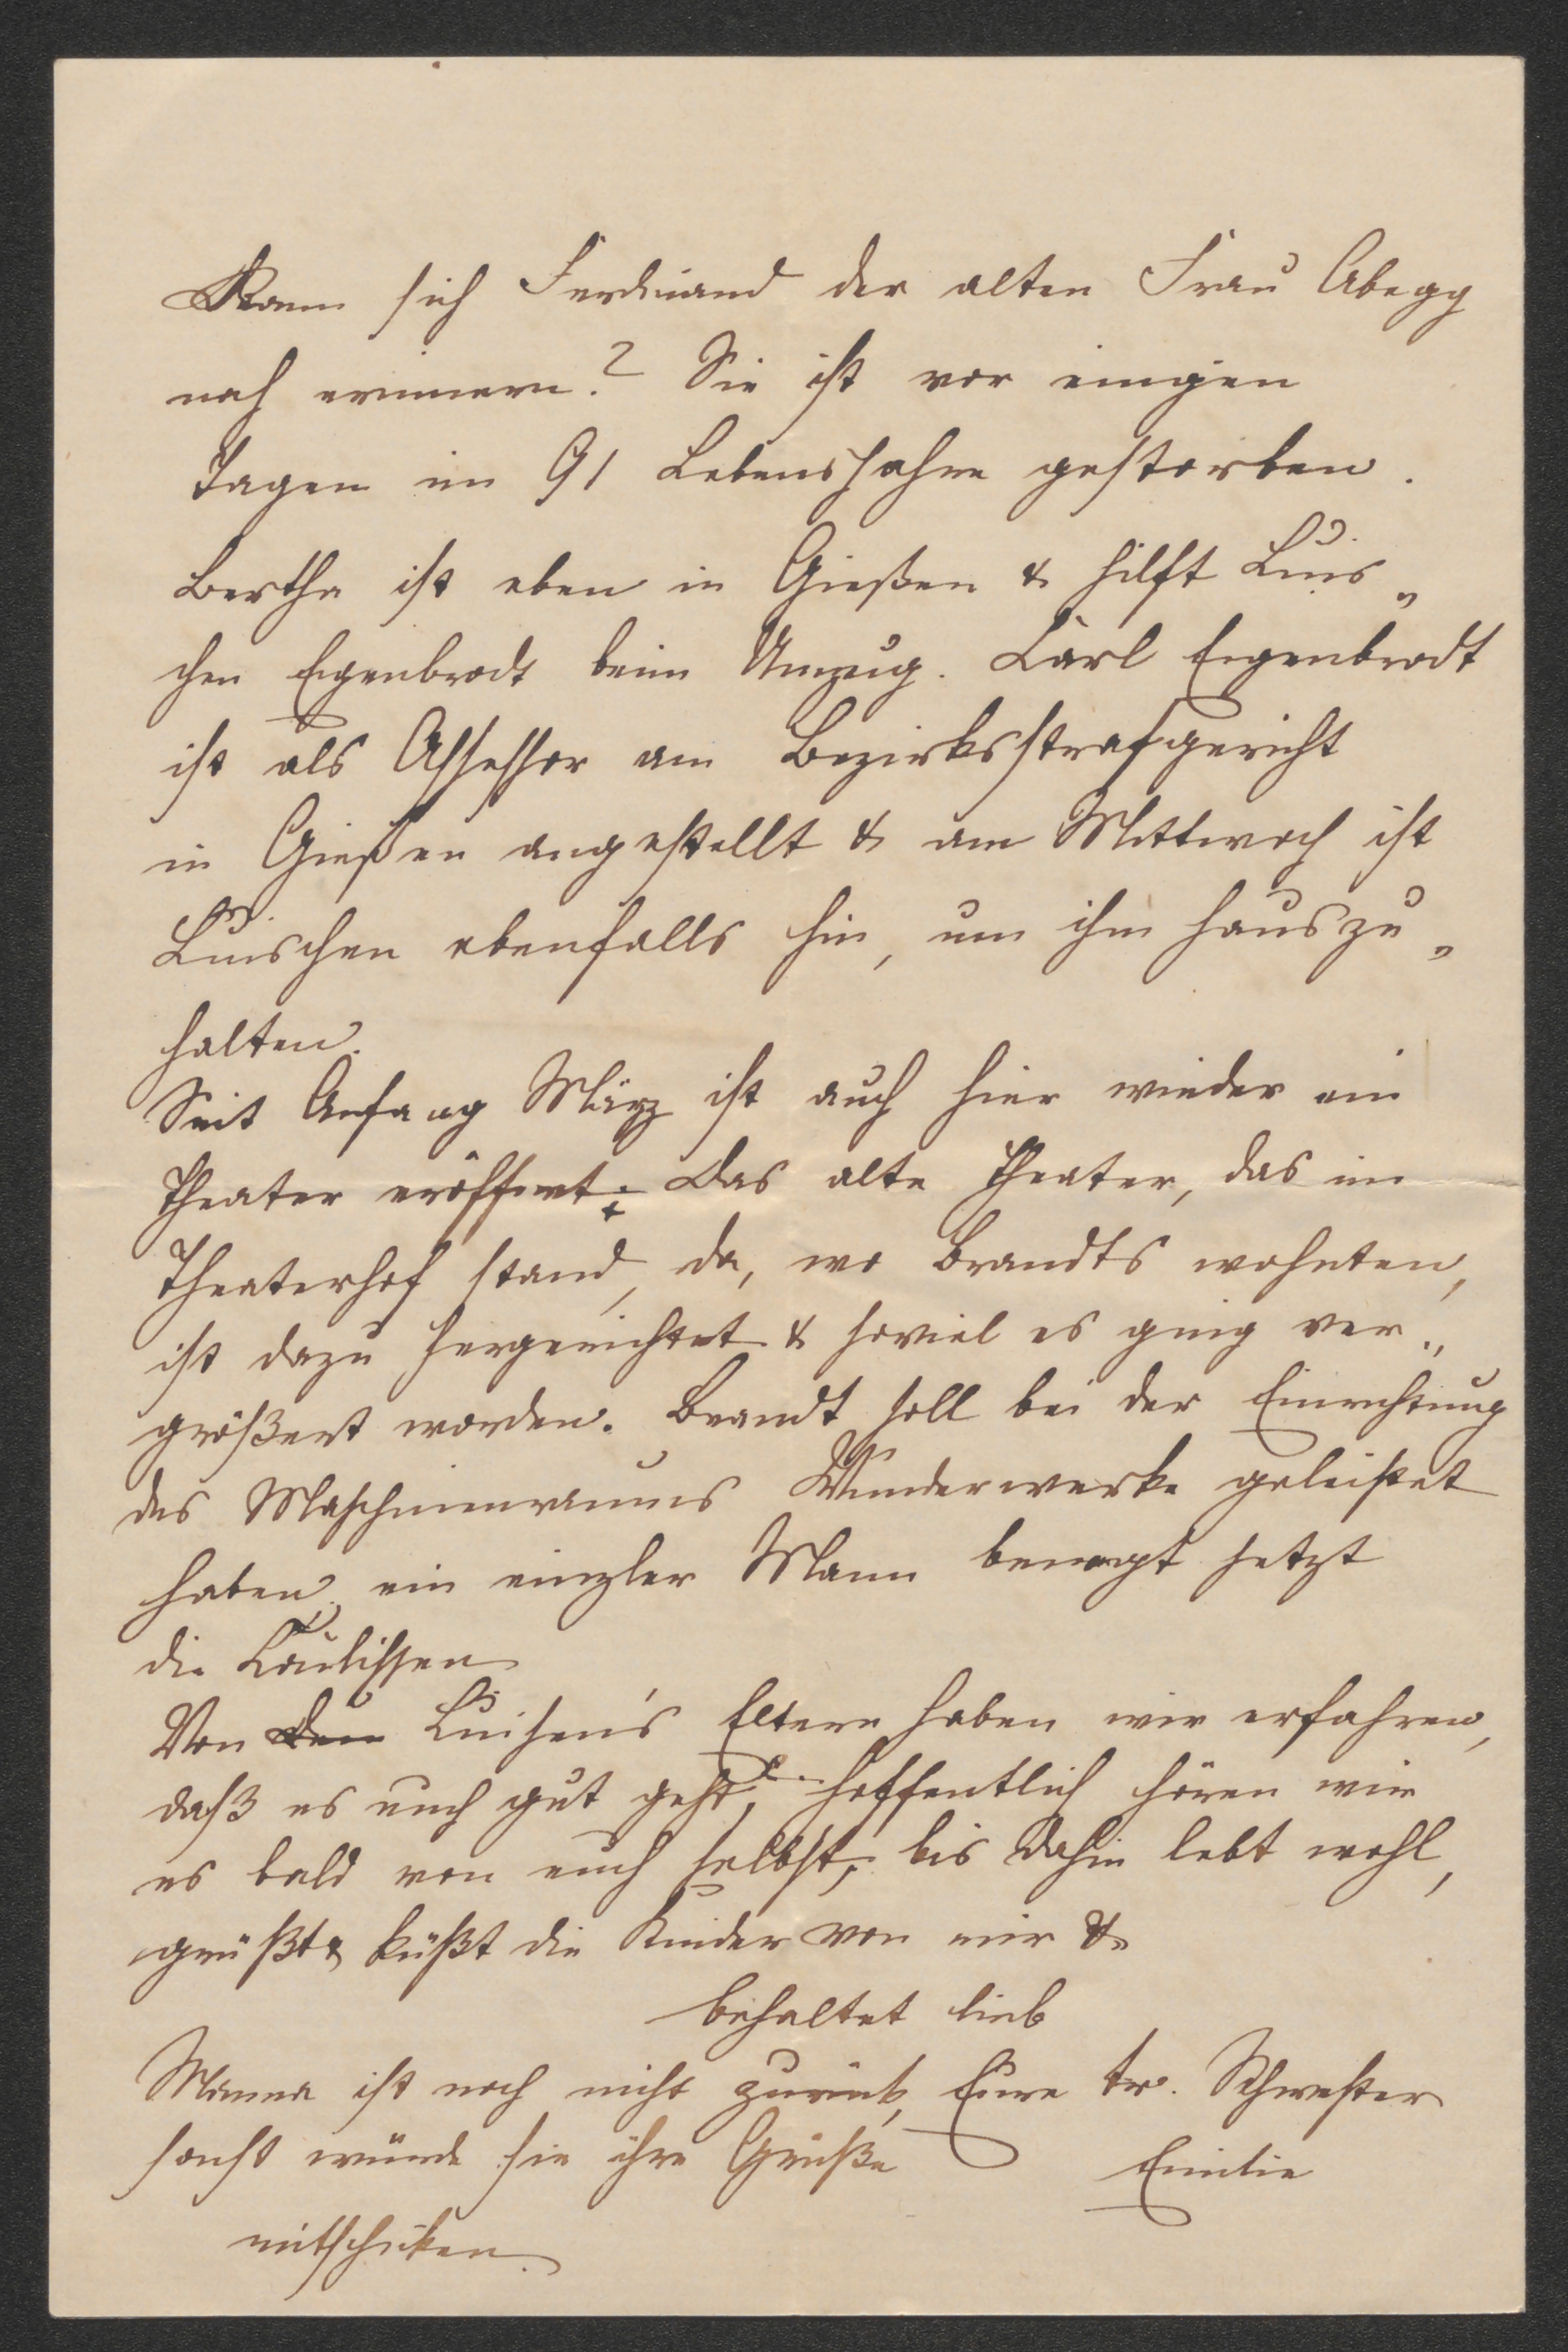 Kann sich Ferdinand der alten Frau Abegg
noch erinnern? Sie ist vor einigen
Tagen im 91 Lebensjahre gestorben.
Bertha ist eben in Gießen & hilft Luis„
chen Eigenbrodt beim Umzug. Carl Eigenbrodt
ist als Assessor am Bezirksstrafgericht
in Gießen angestellt & am Mittwoch ist
Luischen ebenfalls hin, um ihm hauszu„
halten.
Seit Anfang März ist auch hier wieder ein
Theater eröffnet. Das alte Theater, das im
Theaterhof stand, da, wo Brandts wohnten,
ist dazu hergerichtet & soviel es ging ver„
größert worden. Brandt soll bei der Einrichtung
des Maschinenraums Wunderwerke geleistet
haben, ein einzler Mann bewegt jetzt
die Coulissen
Von den Luisen's Eltern haben wir erfahren,
daß es euch gut geht, hoffentlich hören wir
es bald von euch selbst, bis dahin lebt wohl,
grüßt & küßt die Kinder von mir &
behaltet lieb
Mamma ist noch nicht zurück, Eure tr. Schwester
sonst würde sie ihre Grüße Emilie
mitschicken.